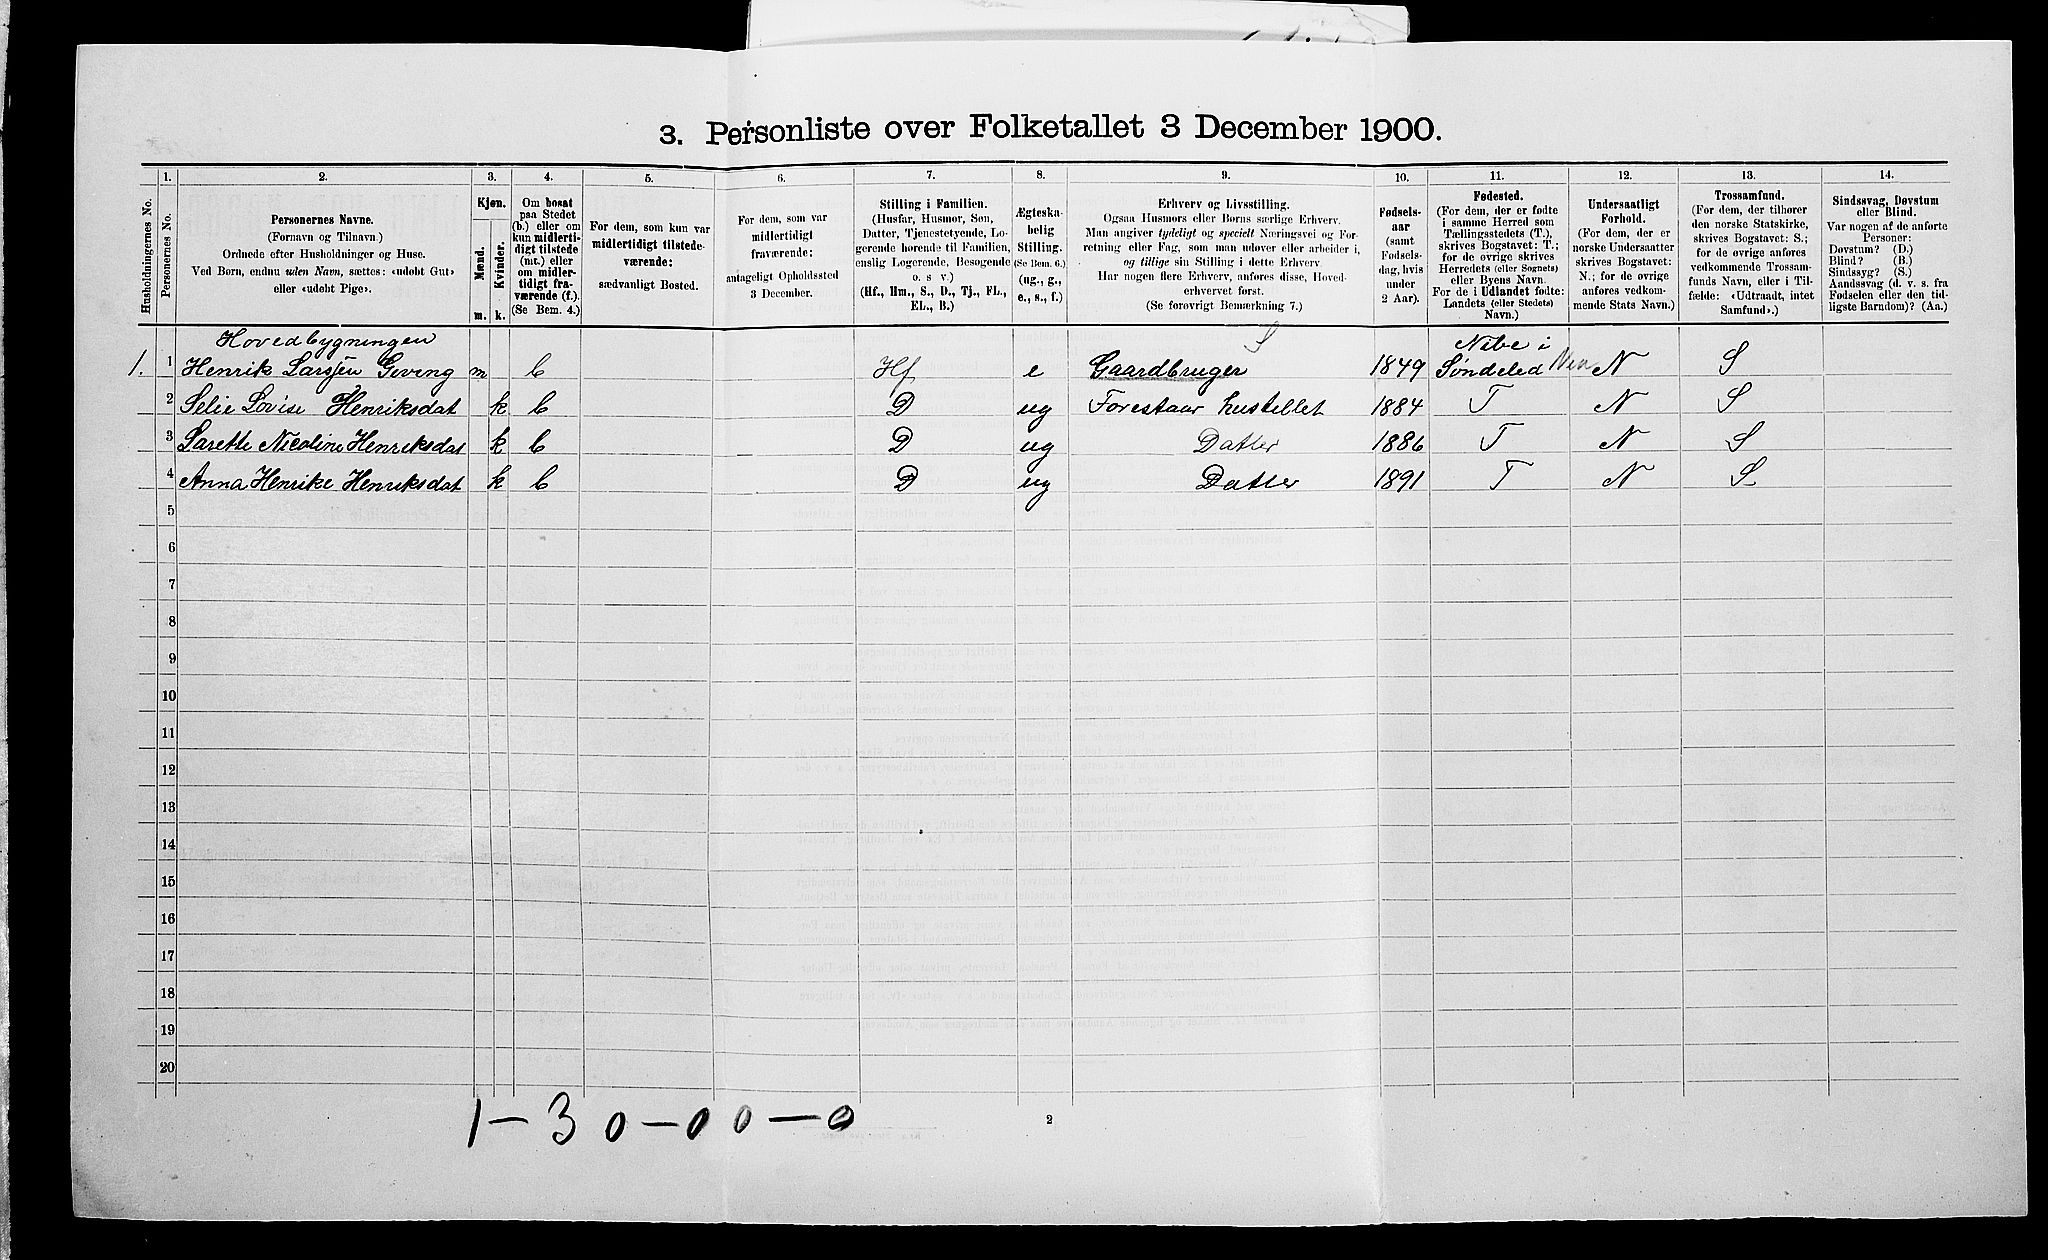 3. Personliste over Folketallet 3 December 1900.
1. 2. 3. 4. 5. 6. 7. 8. 9. 10. 11. 12. 13. 14.
Husholdningernes No.
Personernes No.
Personernes Navne.
(Fornavn og Tilnavn.)
Ordnede efter Husholdninger og Huse.
Ved Børn, endnu uden Navn, sættes: «udøbt Gut»
eller «udøbt Pige».
Kjøn.
Mænd.
Kvinder.
m. k.
Om bosat
paa Stedet
(b.) eller om
kun midlerti-
digt tilstede
(mt.) eller
om midler-
tidigt fra-
værende (f.).
(Se Bem. 4.)
For dem, som kun var
midlertidigt tilstede-
værende:
sædvanligt Bosted.
For dem, som var
midlertidigt
fraværende:
antageligt Opholdssted
3 December.
Stilling i Familien.
(Husfar, Husmor, Søn,
Datter, Tjenestetyende, Lo-
gerende hørende til Familien,
enslig Logerende, Besøgende
o. s v.)
(Hf., Hm., S., D., Tj., FL.,
EL., B.)
Ægteska-
belig
Stilling.
(Se Bem. 6.)
(ug., g.,
e., s., f.)
Erhverv og Livsstilling.
Ogsaa Husmors eller Børns særlige Erhverv.
Man angiver tydeligt og specielt Næringsvei og For-
retning eller Fag, som man udøver eller arbeider i,
og tillige sin Stilling i dette Erhverv.
Har nogen flere Erhverv, anføres disse, Hoved-
erhvervet først.
(Se forøvrigt Bemærkning 7.)
Fødsels-
aar
(samt
Fødsels-
dag, hvis
under
2 Aar).
Fødested.
(For dem, der er fødte
i samme Herred som
Tællingsstedets (T.),
skrives Bogstavet: T.;
for de øvrige skrives
Herredets (eller Sognets)
eller Byens Navn.
For de i Udlandet fødte:
Landets (eller Stedets)
Navn.)
Undersaatligt
Forhold.
(For dem, der er
norske Undersaatter
skrives Bogstavet:
N.; for de øvrige
anføres vedkom-
mende Stats Navn.)
Trossamfund.
(For dem, der tilhører
den norske Statskirke,
skrives Bogstavet: S.;
for de øvrige anføres
vedkommende Trossam-
funds Navn, eller i Til-
fælde: «Udtraadt, intet
Samfund».)
Sindssvag, Døvstum
eller Blind.
Var nogen af de anførte
Personer:
Døvstum? (D.)
Blind? (B.)
Sindssyg? (S.)
Aandssvag (d. v. s. fra
Fødselen eller den tid-
ligste Barndom)? (Aa.)
Hovedbygningen S
1. 1 Henrik Larssen Geving m b Hf e Gaardbruger 1849 Søndeled N S
2 Selie Lovise Henriksdat k b D ug Forestaar hustellet 1884 T N S
3 Sarette Nicoline Henriksdat k b D ug Datter 1886 T N S
4 Anna Henrike Henriksdat k b D ug Datter 1891 T N S
5
6
7
8
9
10
11
12
13
14
15
16
17
18
19
20
1-30-00-0
2